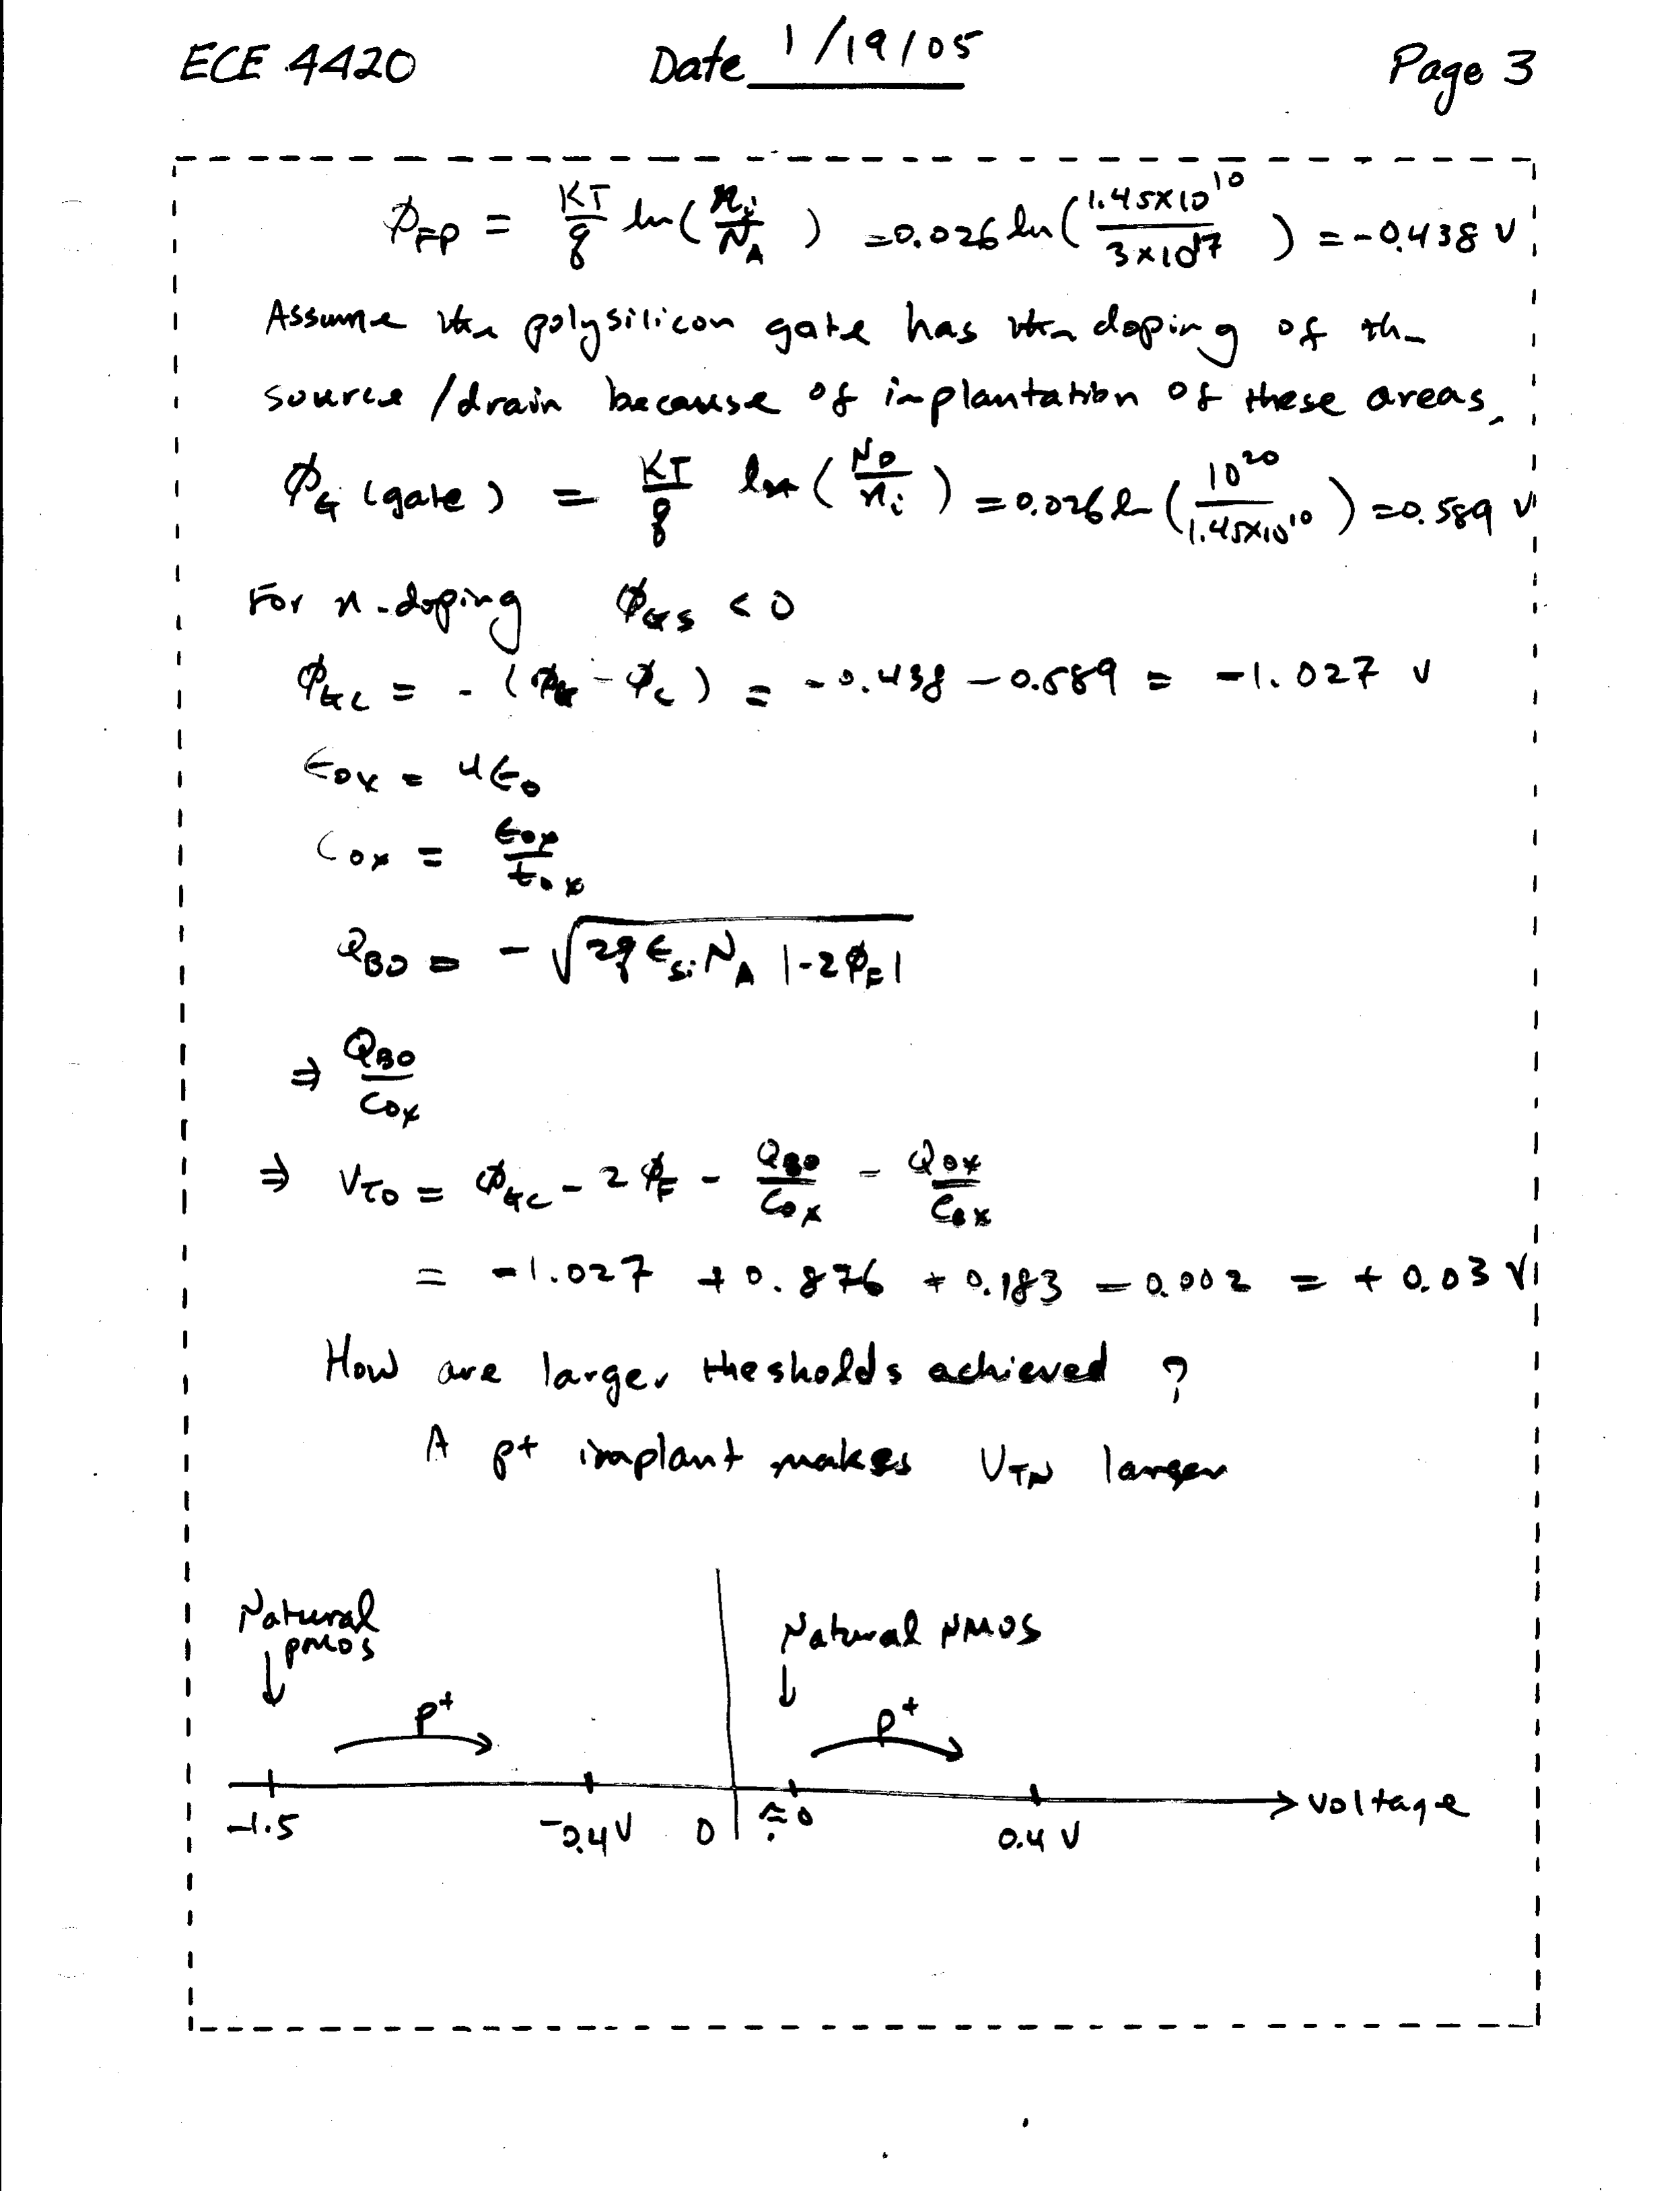 ECE 4420 Date 1/19/05 Page 3
ϕFP = KT/q ln(ni/NA) = 0.026 ln(1.45×10^10 / 3×10^17) = -0.438 V
Assume the polysilicon gate has the doping of the
source/drain because of implantation of these areas.
ϕG (gate) = KT/q ln(ND/ni) = 0.026 ln(10^20 / 1.45×10^10) = 0.589 V
For n-doping ϕGS < 0
ϕGC = -(ϕG - ϕC) = -0.438 - 0.589 = -1.027 V
ϵox = 4ϵ0
Cox = ϵox/tox
QBO = -√(2qϵSi NA |-2ϕF|)
⇒ QBO/Cox
⇒ VTO = ϕGC - 2ϕF - QBO/Cox - Qox/Cox
= -1.027 + 0.876 + 0.183 - 0.002 = +0.03 V
How are larger thesholds achieved ?
A p+ implant makes VTN larger
Natural Natural NMOS
PMOS
p+ p+
-1.5 -0.4V 0 ≈0 0.4 V voltage